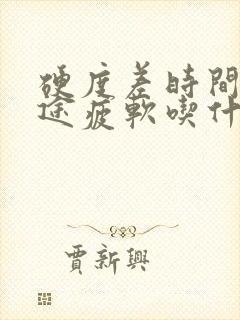 硬度差時間
途疲軟喫什
賈新興